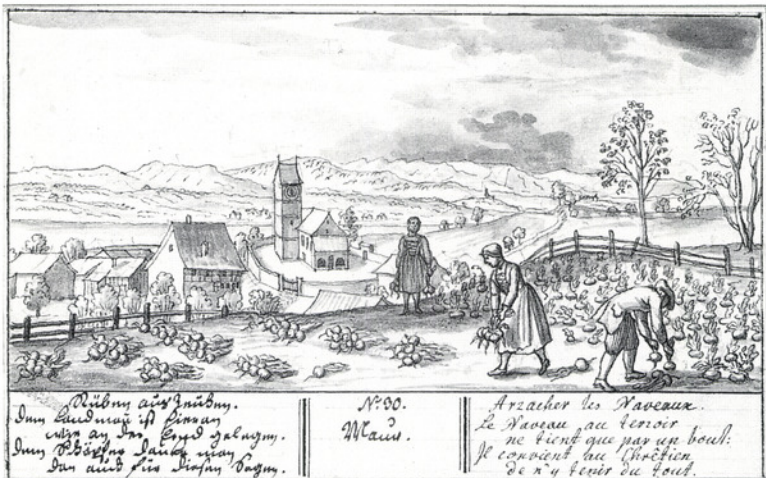 Rüben aus zeühen.
dem Landman ist hieran
wie an der Lend gelegen.
dem Schöpfer danckt man
dan auch für diesen Segen.
N.º 90.
Maur.
Arracher les Naveaux.
Le Naveau au terroir
ne tient que par un bout:
Il convient au Chrétien
de n'y tenir du tout.